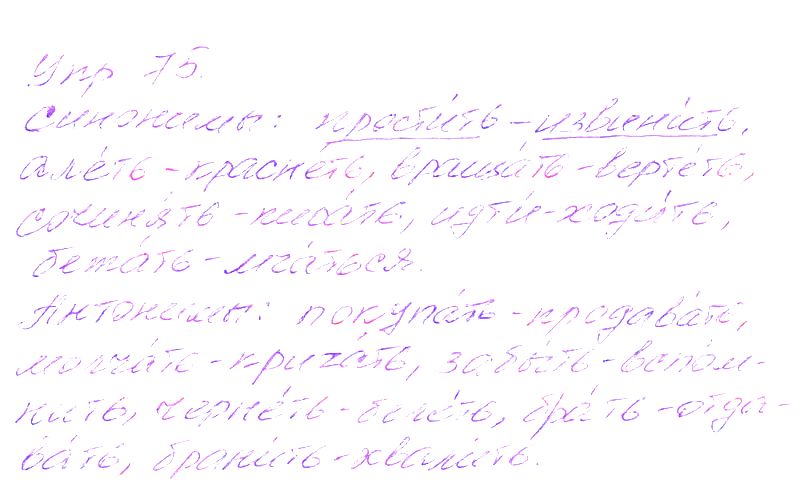 Упр 75.
Синонимы: прости́ть - извини́ть,
але́ть - красне́ть, враща́ть - верте́ть,
сочиня́ть - писа́ть, идти́ - ходи́ть,
бежа́ть - мча́ться.
Антонимы: покупа́ть - продава́ть,
молча́ть - крича́ть, забы́ть - вспо́м-
нить, черне́ть - беле́ть, бра́ть - отда-
ва́ть, брани́ть - хвали́ть.